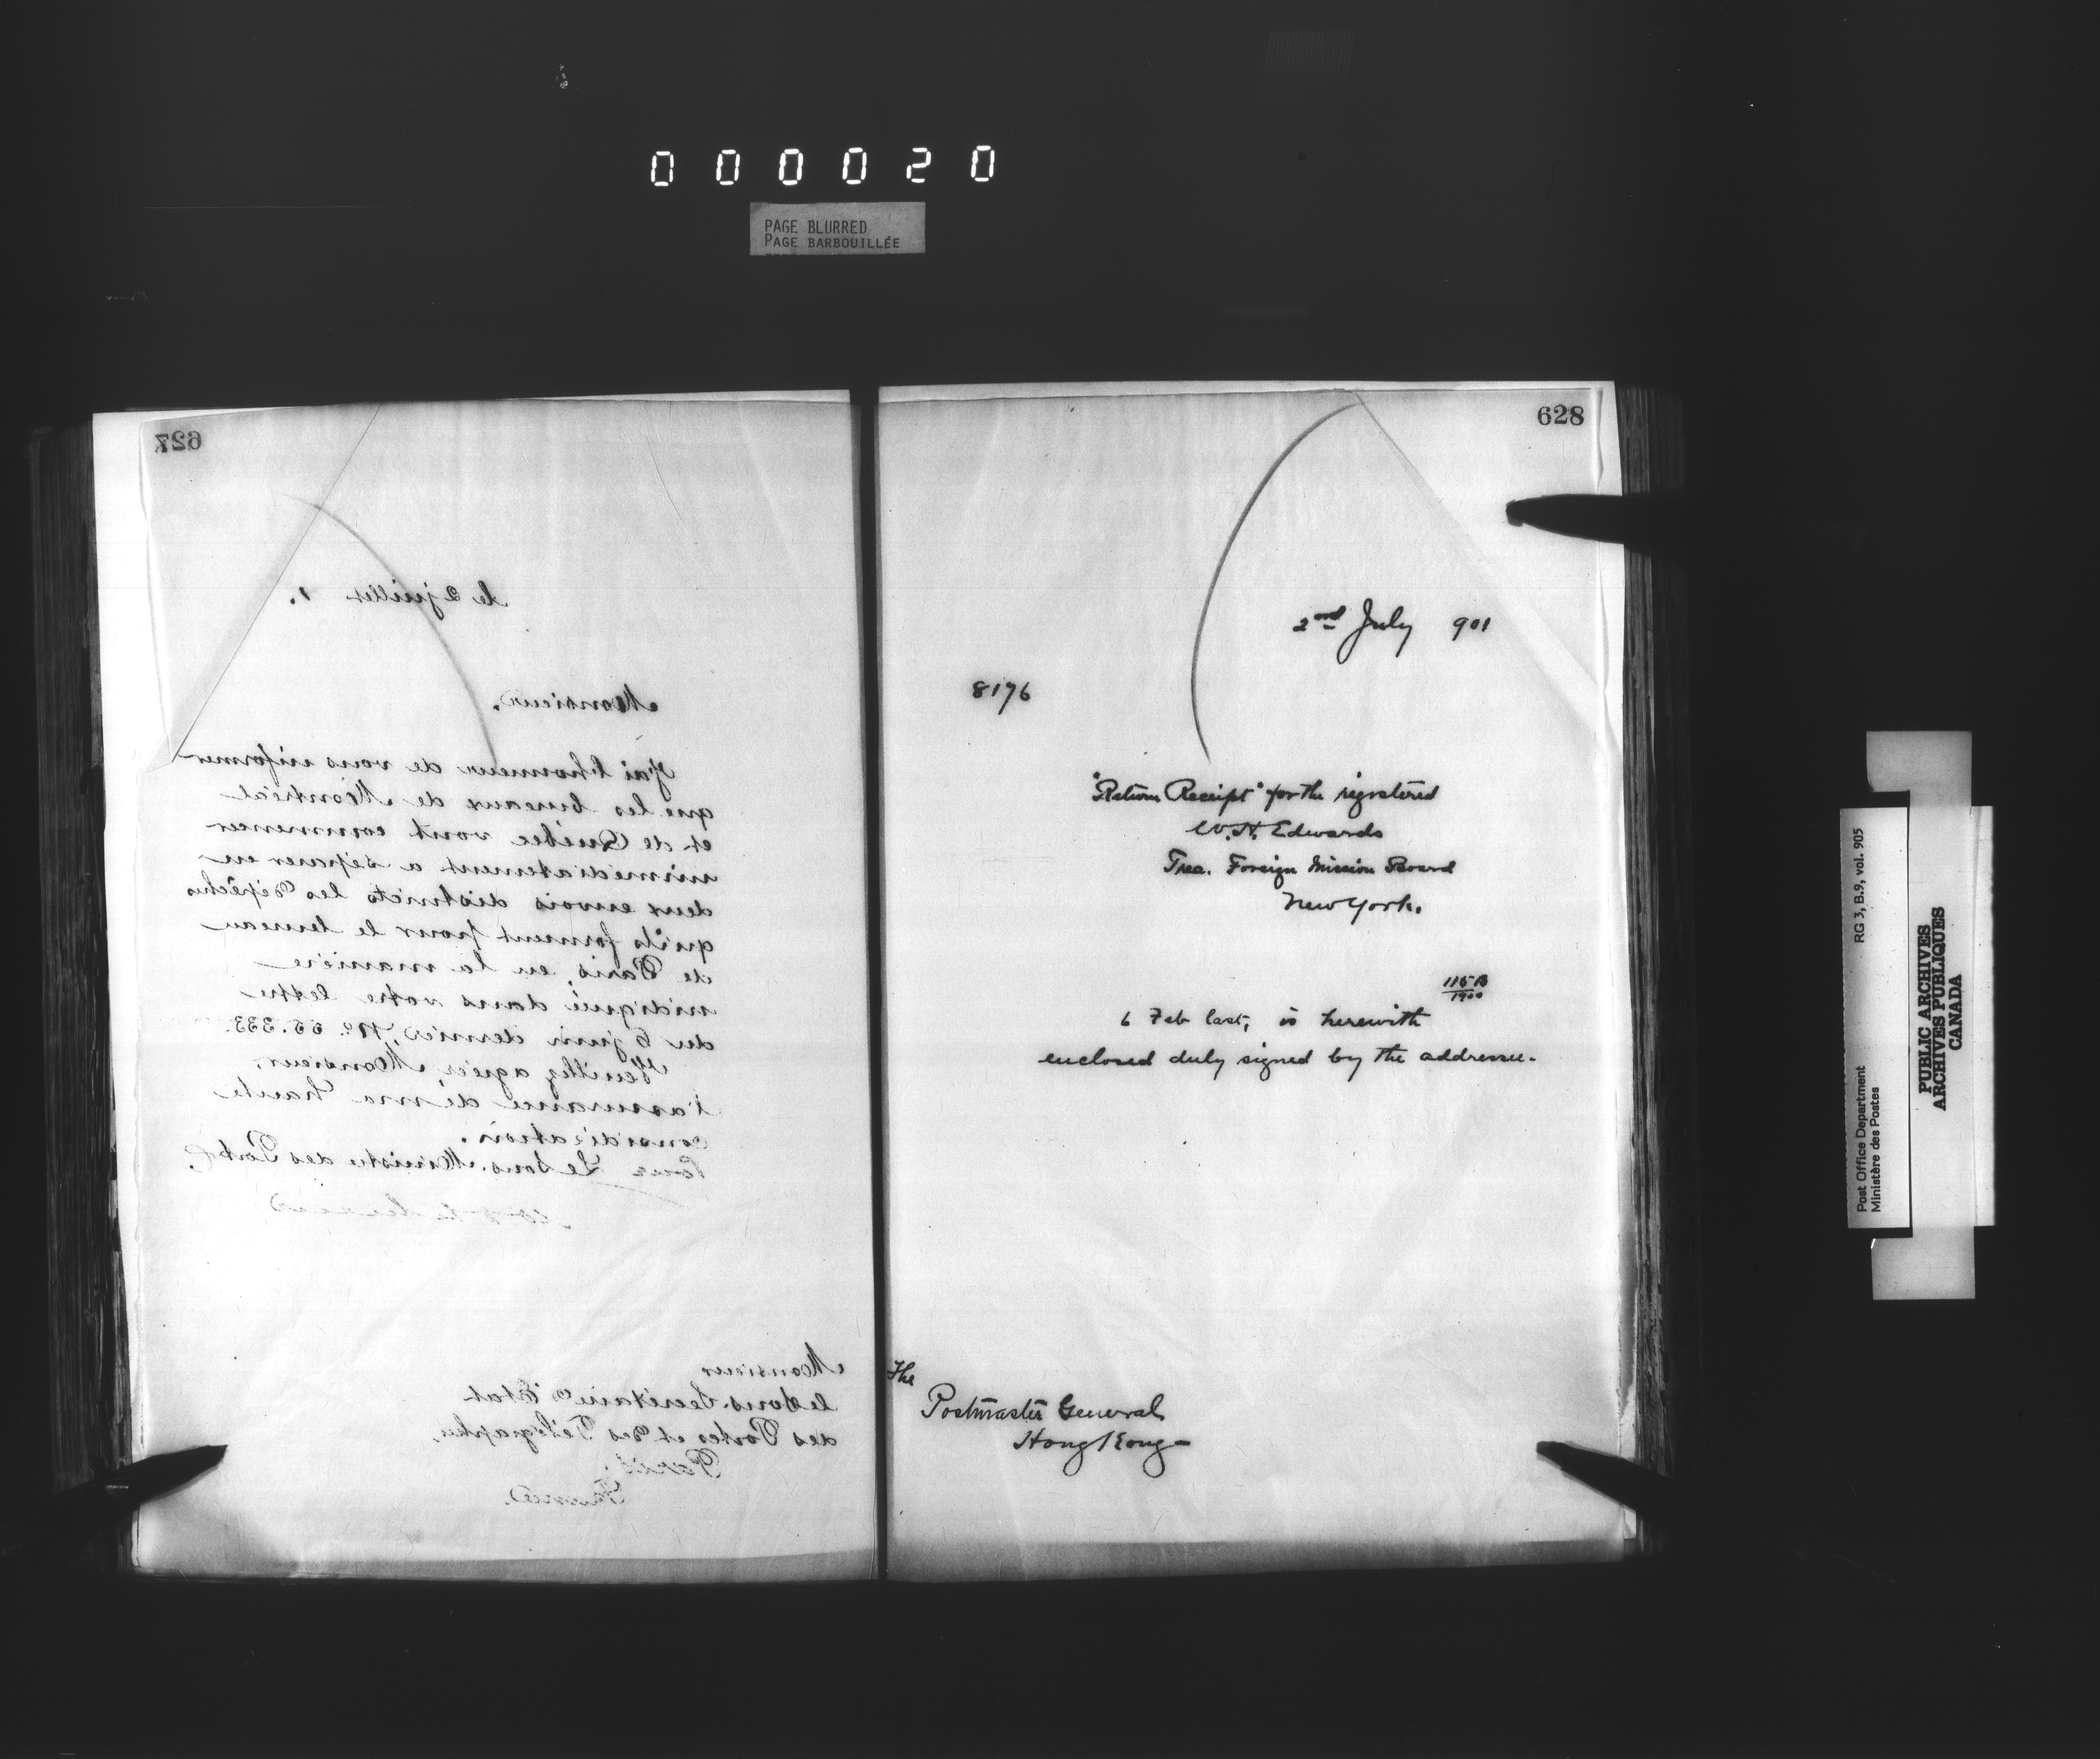 000020
PAGE BLURRED
PAGE BARBOUILLÉE
627
le 2 juillet 1.
Monsieur,
J'ai l'honneur de vous informer
que les bureaux de Montréal
et de Québec vont commencer
immédiatement a séparer en
deux envois districts les dépêches
qu'ils forment pour le bureau
de Paris, en la manière
indiqué dans votre lettre
du 6 juin dernier, No. 55.333.
Veuillez agréer, Monsieur,
l'assurance de ma haute
considération.
Pour Le Sous-Ministre des Postes,
Monsieur
le Sous-Secrétaire d'État
des Postes et des Télégraphes,
Paris,
France.
628
2nd July 901
8176
"Return Receipt" for the registered
W. H. Edwards
Trea. Foreign Mission Board
New York.
115 B
1900
6 Feb last, is herewith
enclosed duly signed by the addressee.
The
Postmaster General
Hong Kong
Post Office Department
Ministère des Postes
RG 3, B.9, vol. 905
PUBLIC ARCHIVES
ARCHIVES PUBLIQUES
CANADA